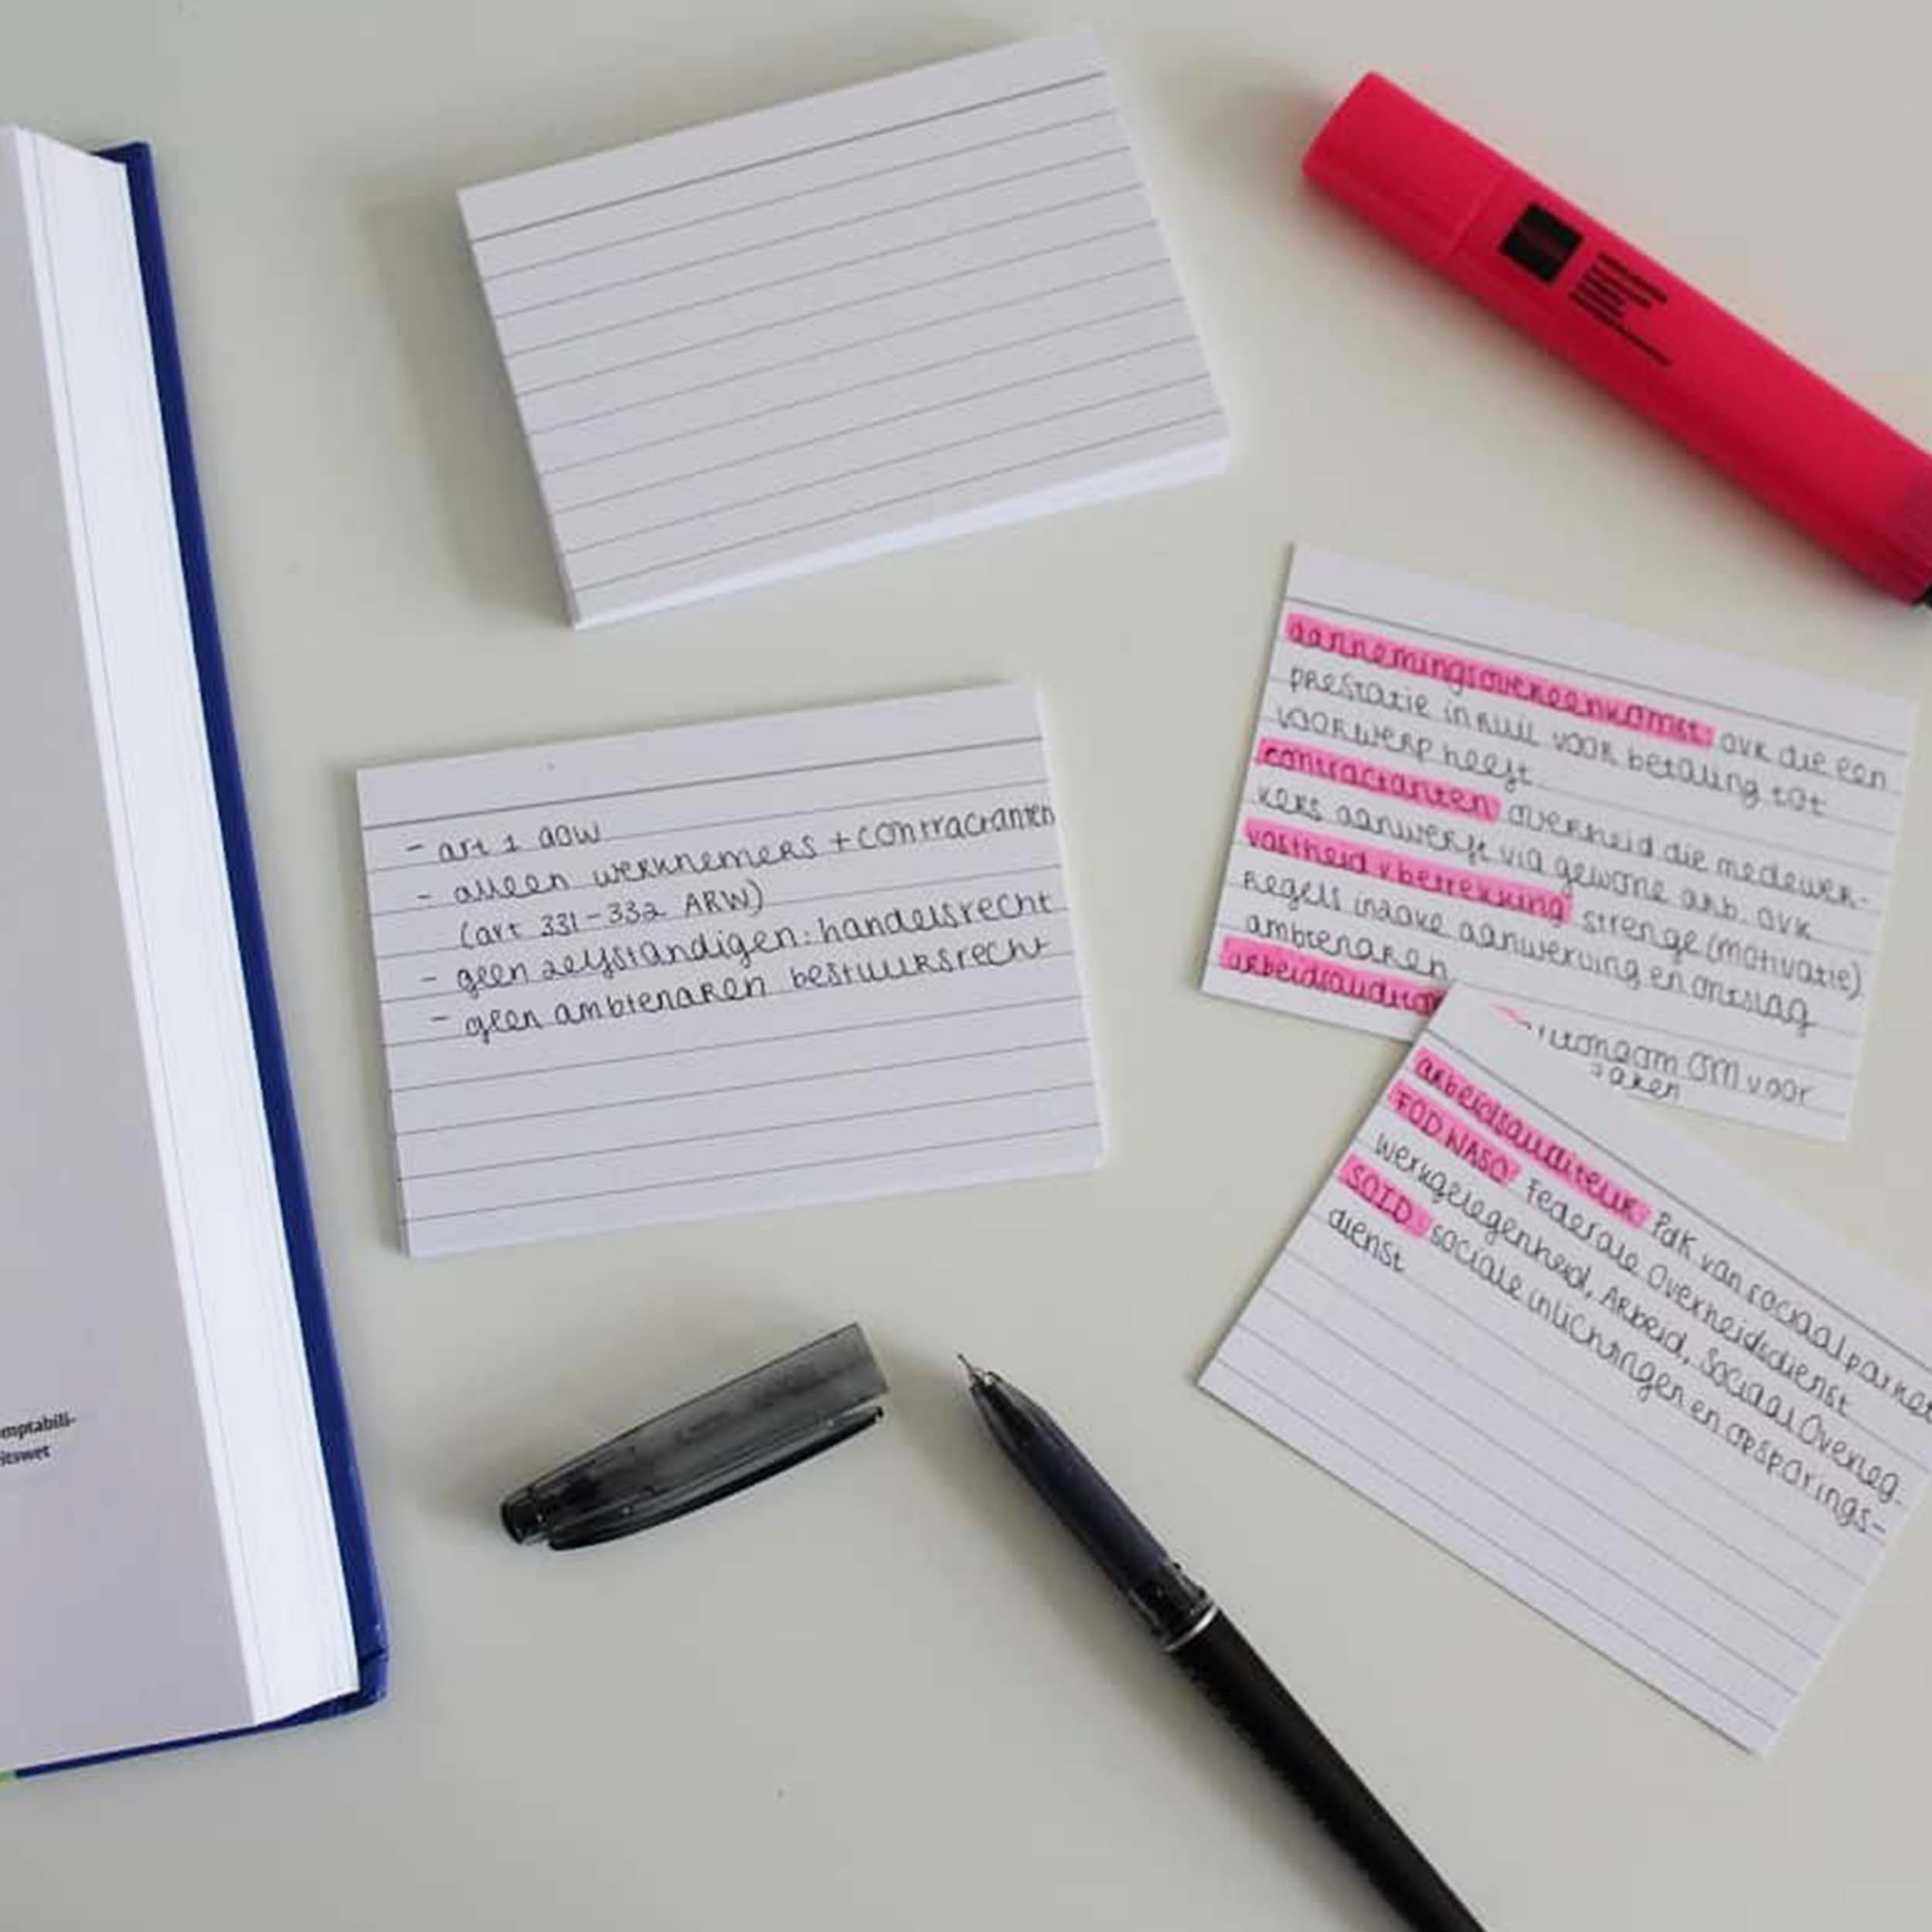 omptabili-
itswet
- art 1 AOW
- alleen werknemers + contractanten
(art 331-332 ARW)
- geen zelfstandigen: handelsrecht
- geen ambtenaren bestuursrecht
aannemingsovereenkomst: ovk die een
prestatie in ruil voor betaling tot
voorwerp heeft
contractanten overheid die medewer-
kers aanwerft via gewone arb. ovk
vastheid v betrekking strenge (motivatie)
regels inzake aanwerving en ontslag
ambtenaren
arbeidsauditor
OM voor
arbeidsauditeur: Pak van sociaal
FOD WASO: Federale Overheidsdienst
Werkgelegenheid, Arbeid, Sociaal Overleg
SOID: sociale inlichtingen en opsparings-
dienst